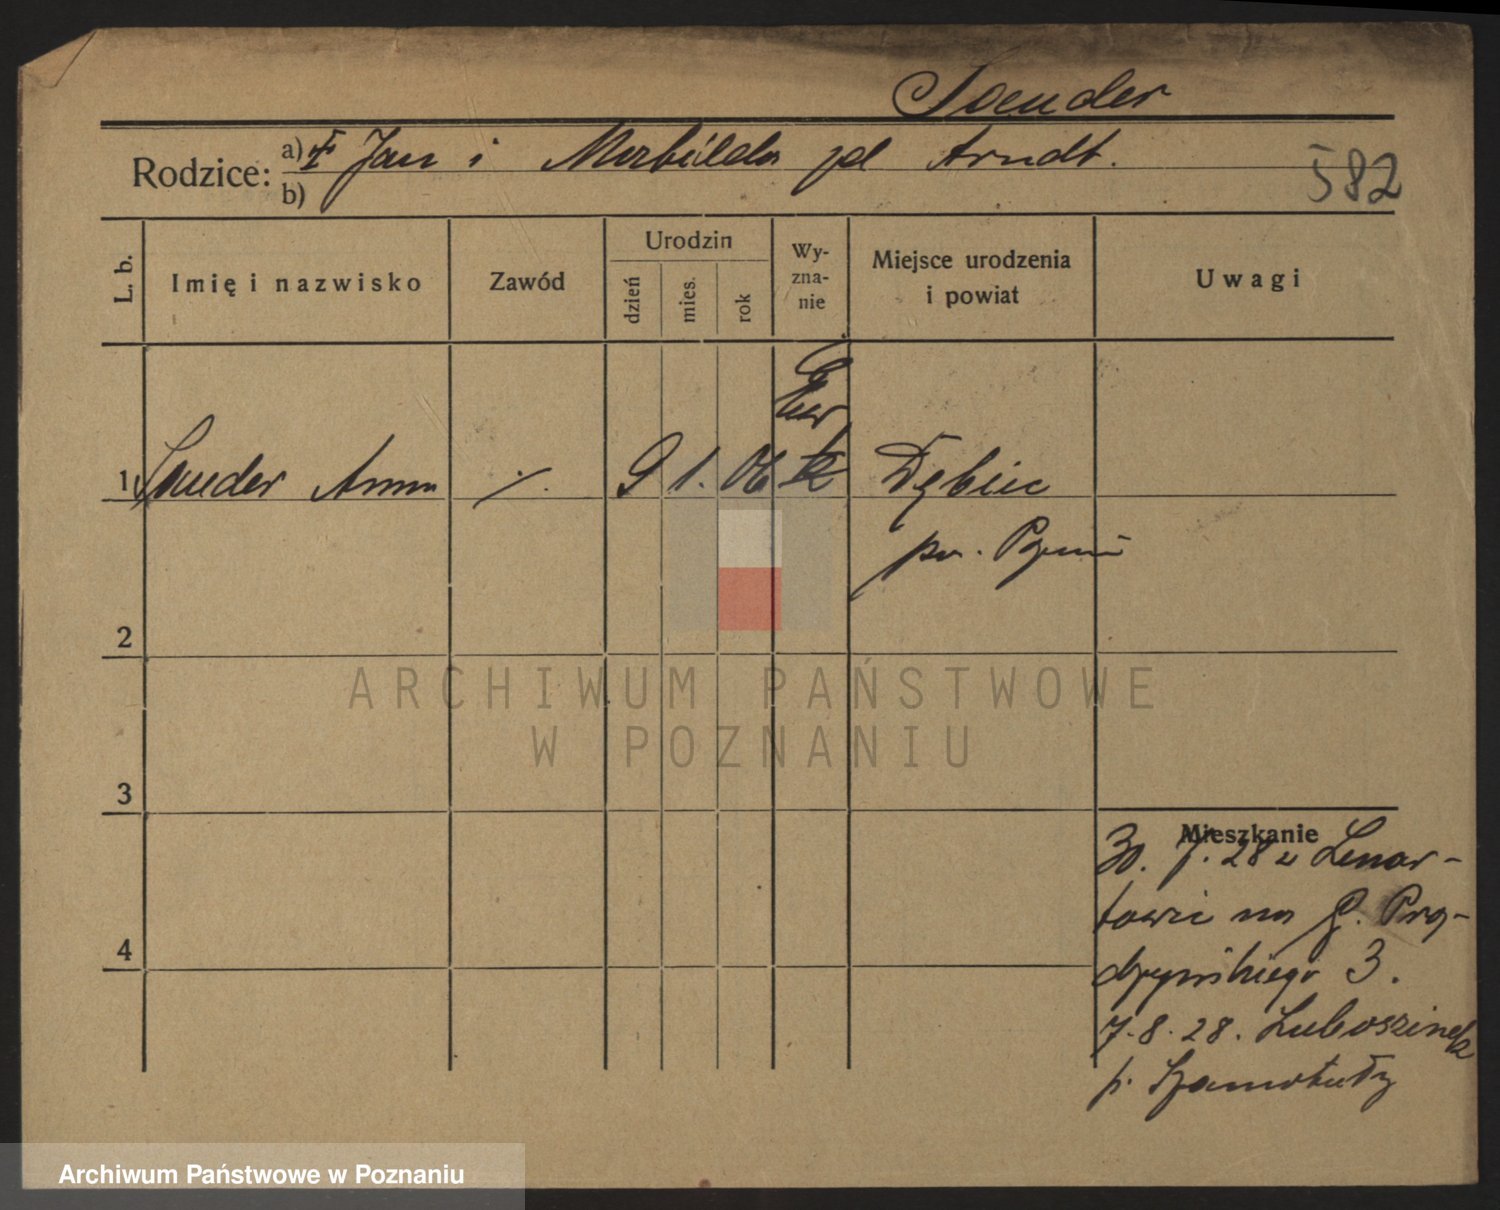 Sauder
Rodzice: a) Jan i Matylda pd Arndt.
b)
582
L. b. Imię i nazwisko Zawód Urodzin dzień mies. rok Wy-zna-nie Miejsce urodzenia i powiat Uwagi
1 Sauder Anna ./. 9 1. 06 Dębiec
pow.
2
3
4
Mieszkanie
30. 7. 28 z Lenar-
towic na
3.
7.8.28. Luboszinek
p. Szamotuły
ARCHIWUM PAŃSTWOWE
W POZNANIU
Archiwum Państwowe w Poznaniu